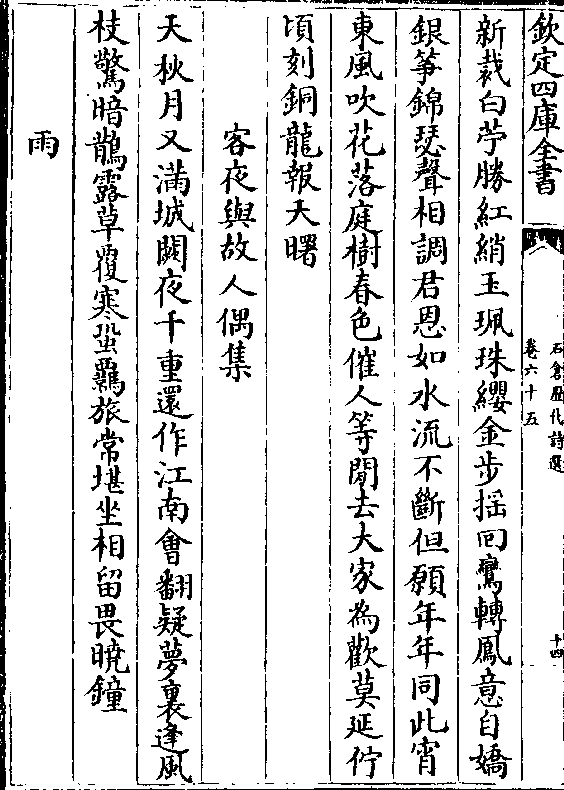 欽定四庫全書
石倉歷代詩選
卷六十五
十四
新裁白苧勝紅綃玉珮珠纓金步搖回鸞轉鳳意自嬌
銀箏錦瑟聲相調君恩如水流不斷但願年年同此宵
東風吹花落庭樹春色催人等閒去大家為歡莫延佇
頃刻銅龍報天曙
客夜與故人偶集
天秋月又滿城闕夜千重還作江南會翻疑夢裏逢風
枝驚暗鵲露草覆寒蛩羇旅常堪坐相留畏曉鐘
雨